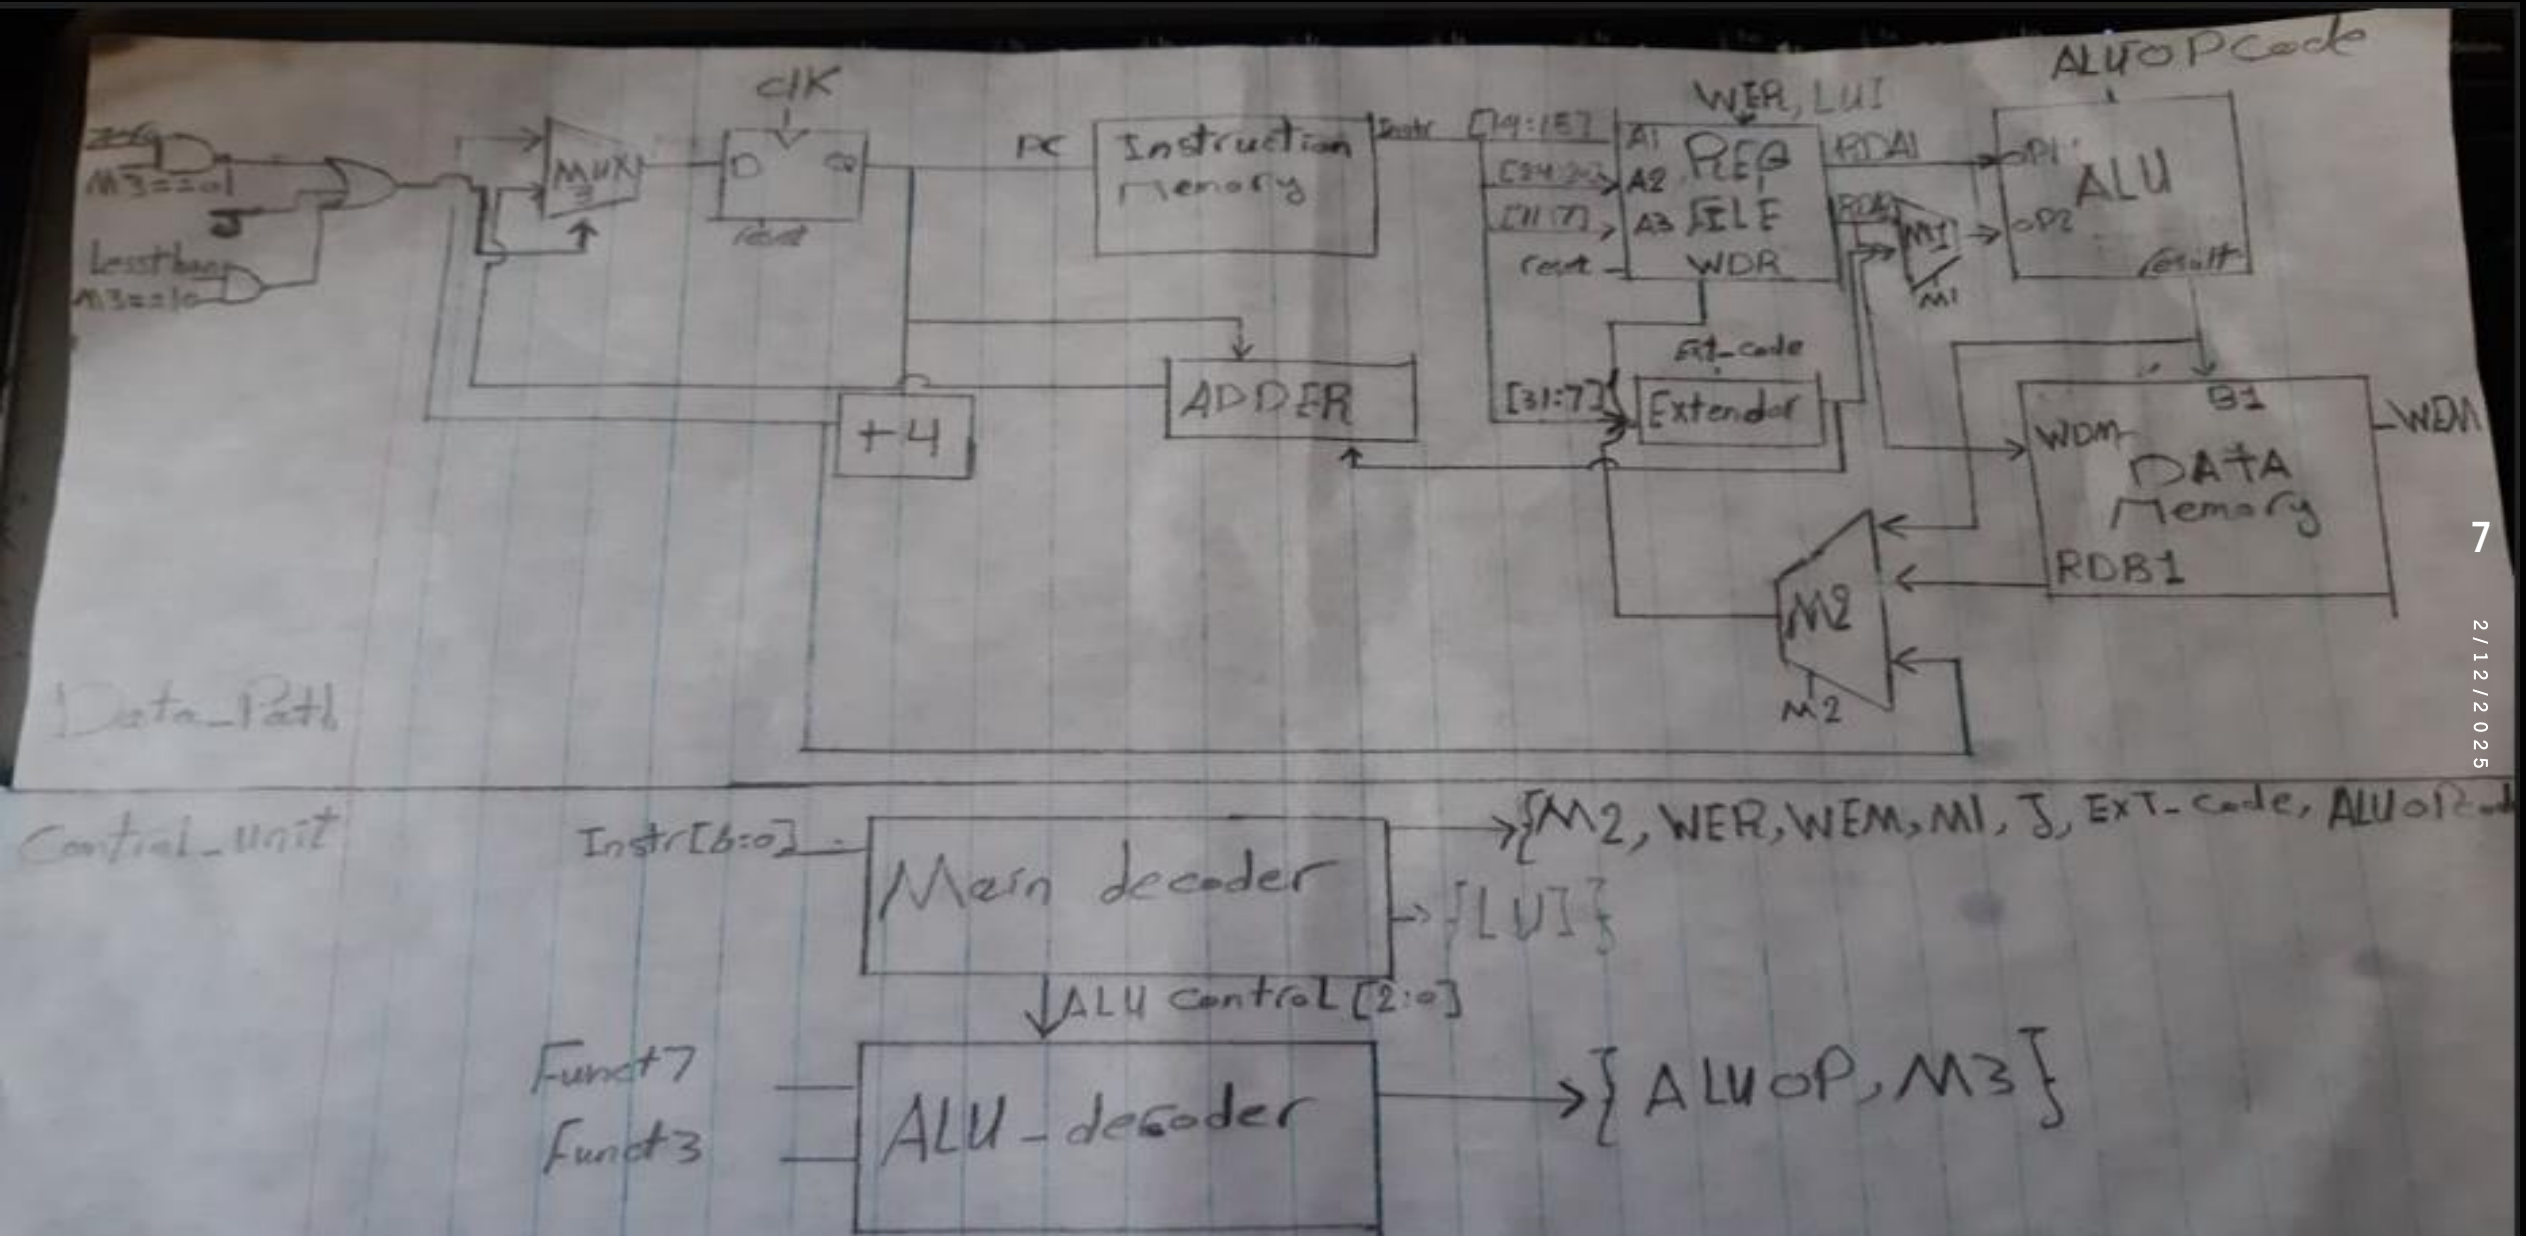 clK
ALUOPCode
WER, LUI
zero
M3==01
J
Lessthan
M3==10
MUX
3
D
Q
reset
PC
Instruction
Memory
Instr
[19:15]
[11:7]
reset
A1
A2
A3
REG
FILE
WDR
RDA1
M1
M1
OP1
OP2
ALU
result
ADDER
+4
[31:7]
Ext_code
Extender
B1
WDM
DATA
Memory
RDB1
WEM
M2
M2
7
2/12/2025
Data_Path
Control_unit
Instr[6:0]
Main decoder
{M2, WER, WEM, M1, J, EXT_Code, ALUOPCode
{LUI}
ALU Control[2:0]
Funct7
Funct3
ALU_decoder
{ALUOP, M3}